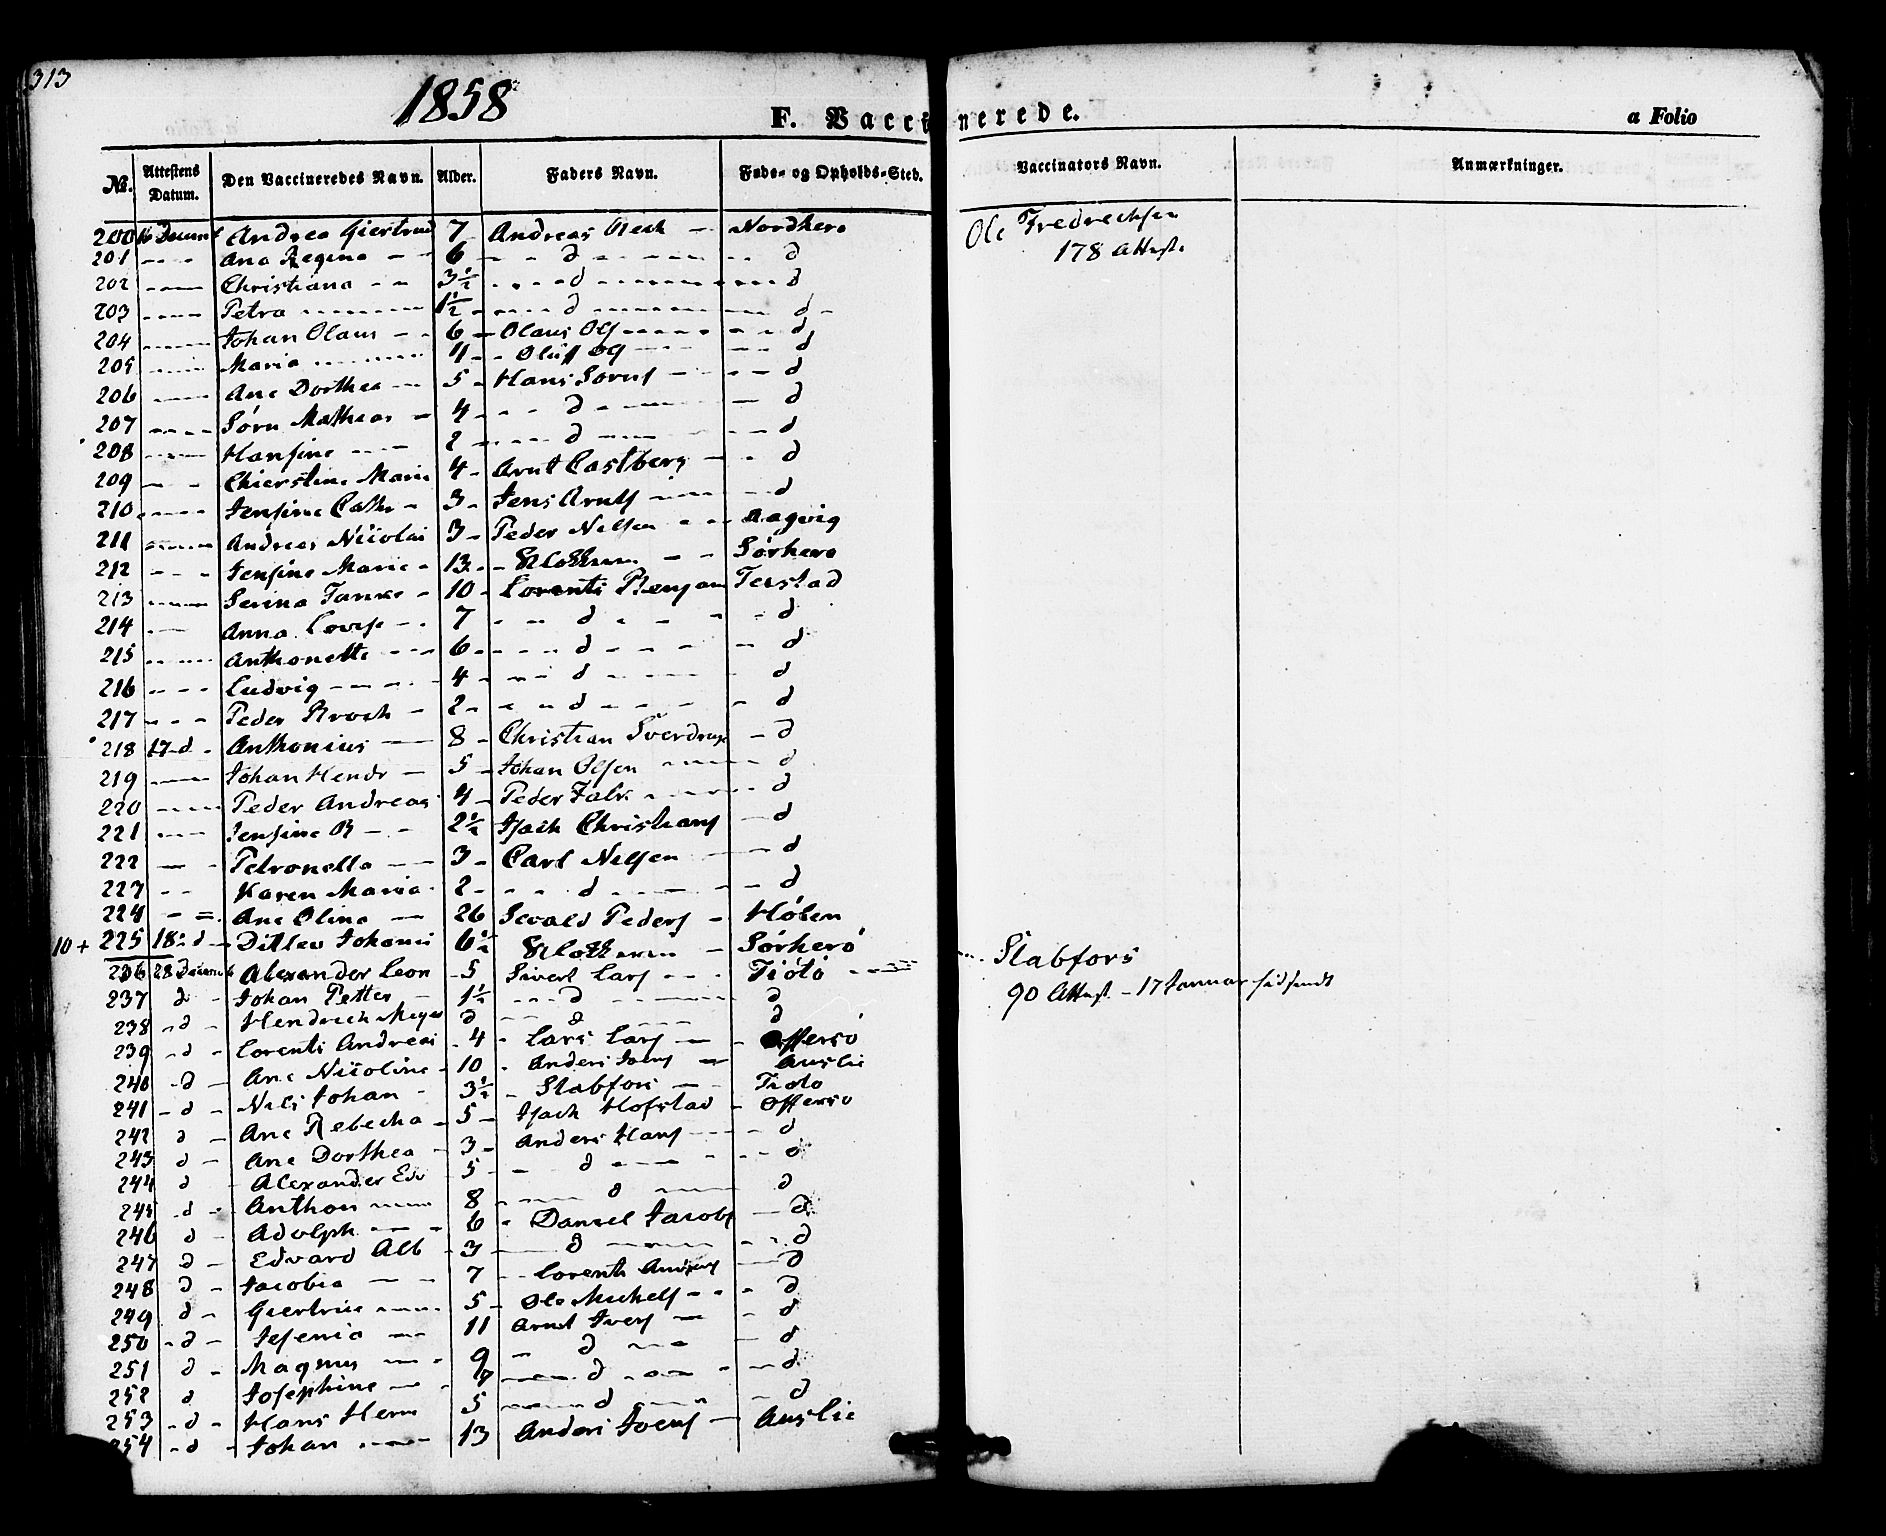 313
1858
F. Vaccinerede.
a Folio
No. Attestens Datum. Den Vaccineredes Navn. Alder. Faders Navn. Føde- og Opholds-Sted. Vaccinators Navn. Anmærkninger.
200 16 Decemb Andrea Giertrud 7 Andreas Nordherø Ole Fredrechsen
178 Attest.
201 Ana Regina 6 d d
202 Christiana 3½ d d
203 Petra 1½ d d
204 Johan Olaus 6 Olaus Ols d
205 Maria 11 Oluf d
206 Ane Dorthea 5 Hans Sørens d
207 Sørn Mathias 4 d d
208 Hansine 2 d d
209 Chierstine Marie 4 Arnt Castberg d
210 Jensine Cath 3 Jens Arnts d
211 Andreas Nicolai 3 Peder Nilsen Aagvig
212 Jensine Marie 13 Sørherø
213 Serina Tanke 10 Lorents Benjam Terstad
214 Anna Lovise 7 d d
215 Anthonette 6 d d
216 Ludvig 4 d d
217 Peder Kroch 2 d d
218 17 d Anthonius 8 Christian Sverdrup d
219 Johan Hendr 5 Johan Olsen d
220 Peder Andreas 4 Peder Falk d
221 Jensine B 2½ Isach Christians d
222 Petronella 3 Carl Nilsen d
223 Karen Maria 2 d d
224 Ane Olina 26 Sevald Peders Høben
10 + 225 18 d Ditlev Johannes 6½ Sørherø
236 28 Decemb Alexander Leon 5 Sivert Lars Tiøtø Stabfors
90 Attest. - 17 Januar sidsendt
237 d Johan Petter 1½ d d
238 d Hendrich Meyer d d d
239 d Lorents Andreas 4 Lars Lars Offersø
240 d Ane Nicoline 10 Anders Joens Auslie
241 d Nils Johan 3½ Stabfors Tiøtø
242 d Ane Rebecha 5 Isach Hofstad Offersø
243 d Ane Dorthea 3 Anders Hans d
244 d Alexander Edv 5 d d
245 d Anthon 8 d d
246 d Adolph 6 Daniel Jacobs d
247 d Edvard Alb 3 d d
248 d Jacobia 7 Lorents Anders d
249 d Giertrue 5 Ole Michels d
250 d Jesenia 11 Arnt Ivers d
251 d Magnus 9 d d
252 d Josephine d d
253 d Hans Herm 5 d d
254 d Johan 13 Anders Joens Auslie